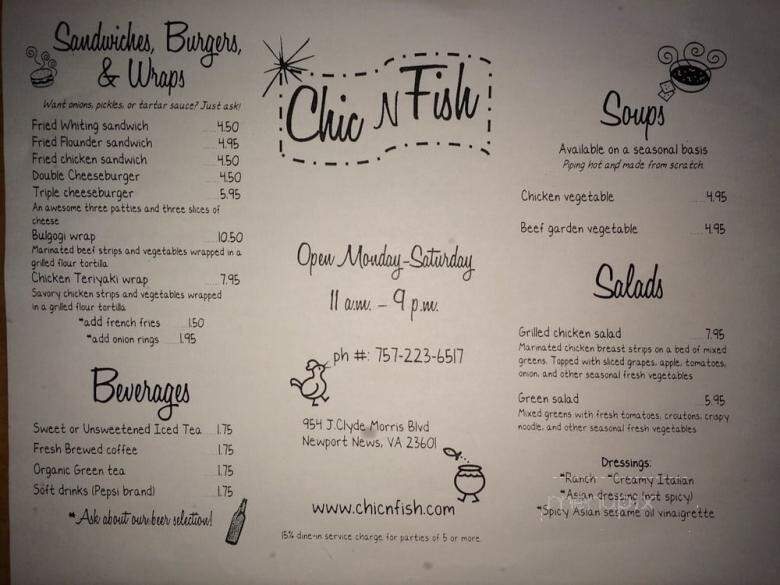 Sandwiches, Burgers,
& Wraps
Want onions, pickles, or tartar sauce? Just ask!
Fried Whiting sandwich 4.50
Fried Flounder sandwich 4.95
Fried chicken sandwich 4.50
Double Cheeseburger 4.50
Triple cheeseburger 5.95
An awesome three patties and three slices of
cheese
Bulgogi wrap 10.50
Marinated beef strips and vegetables wrapped in a
grilled flour tortilla
Chicken Teriyaki wrap 7.95
Savory chicken strips and vegetables wrapped
in a grilled flour tortilla
*add french fries 1.50
*add onion rings 1.95
Beverages
Sweet or Unsweetened Iced Tea 1.75
Fresh Brewed coffee 1.75
Organic Green tea 1.75
Soft drinks (Pepsi brand) 1.75
*Ask about our beer selection!
Chic N Fish
Open Monday-Saturday
11 a.m. - 9 p.m.
ph #: 757-223-6517
954 J.Clyde Morris Blvd
Newport News, VA 23601
www.chicnfish.com
15% dine-in service charge for parties of 5 or more.
Soups
Available on a seasonal basis
Piping hot and made from scratch.
Chicken vegetable 4.95
Beef garden vegetable 4.95
Salads
Grilled chicken salad 7.95
Marinated chicken breast strips on a bed of mixed
greens. Topped with sliced grapes, apple, tomatoes,
onion, and other seasonal fresh vegetables
Green salad 5.95
Mixed greens with fresh tomatoes, croutons, crispy
noodle, and other seasonal fresh vegetables
Dressings:
*Ranch *Creamy Italian
*Asian dressing (not spicy)
*Spicy Asian sesame oil vinaigrette
menupix